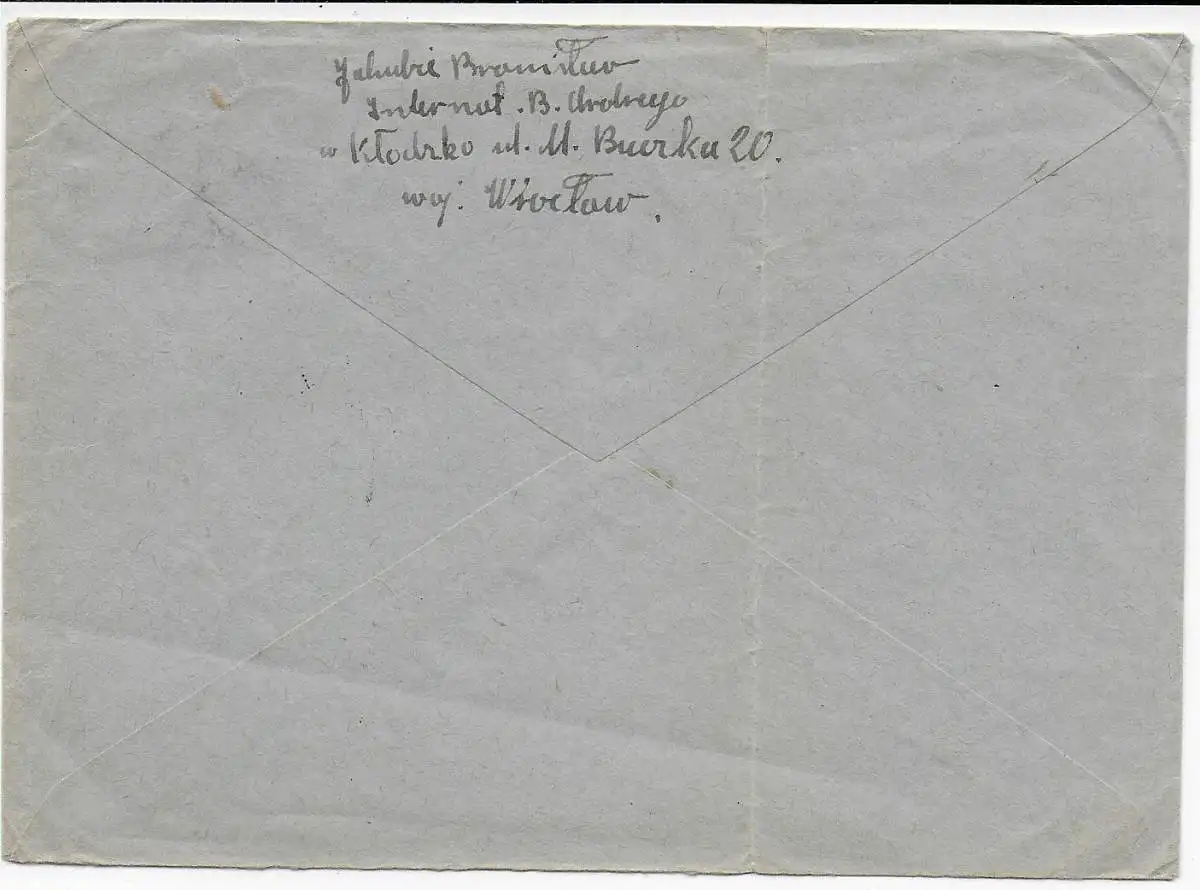 Jakubic Bronisław
Internat. B.
w Kłodzko ul. M. Buczka 20.
woj: Wrocław.